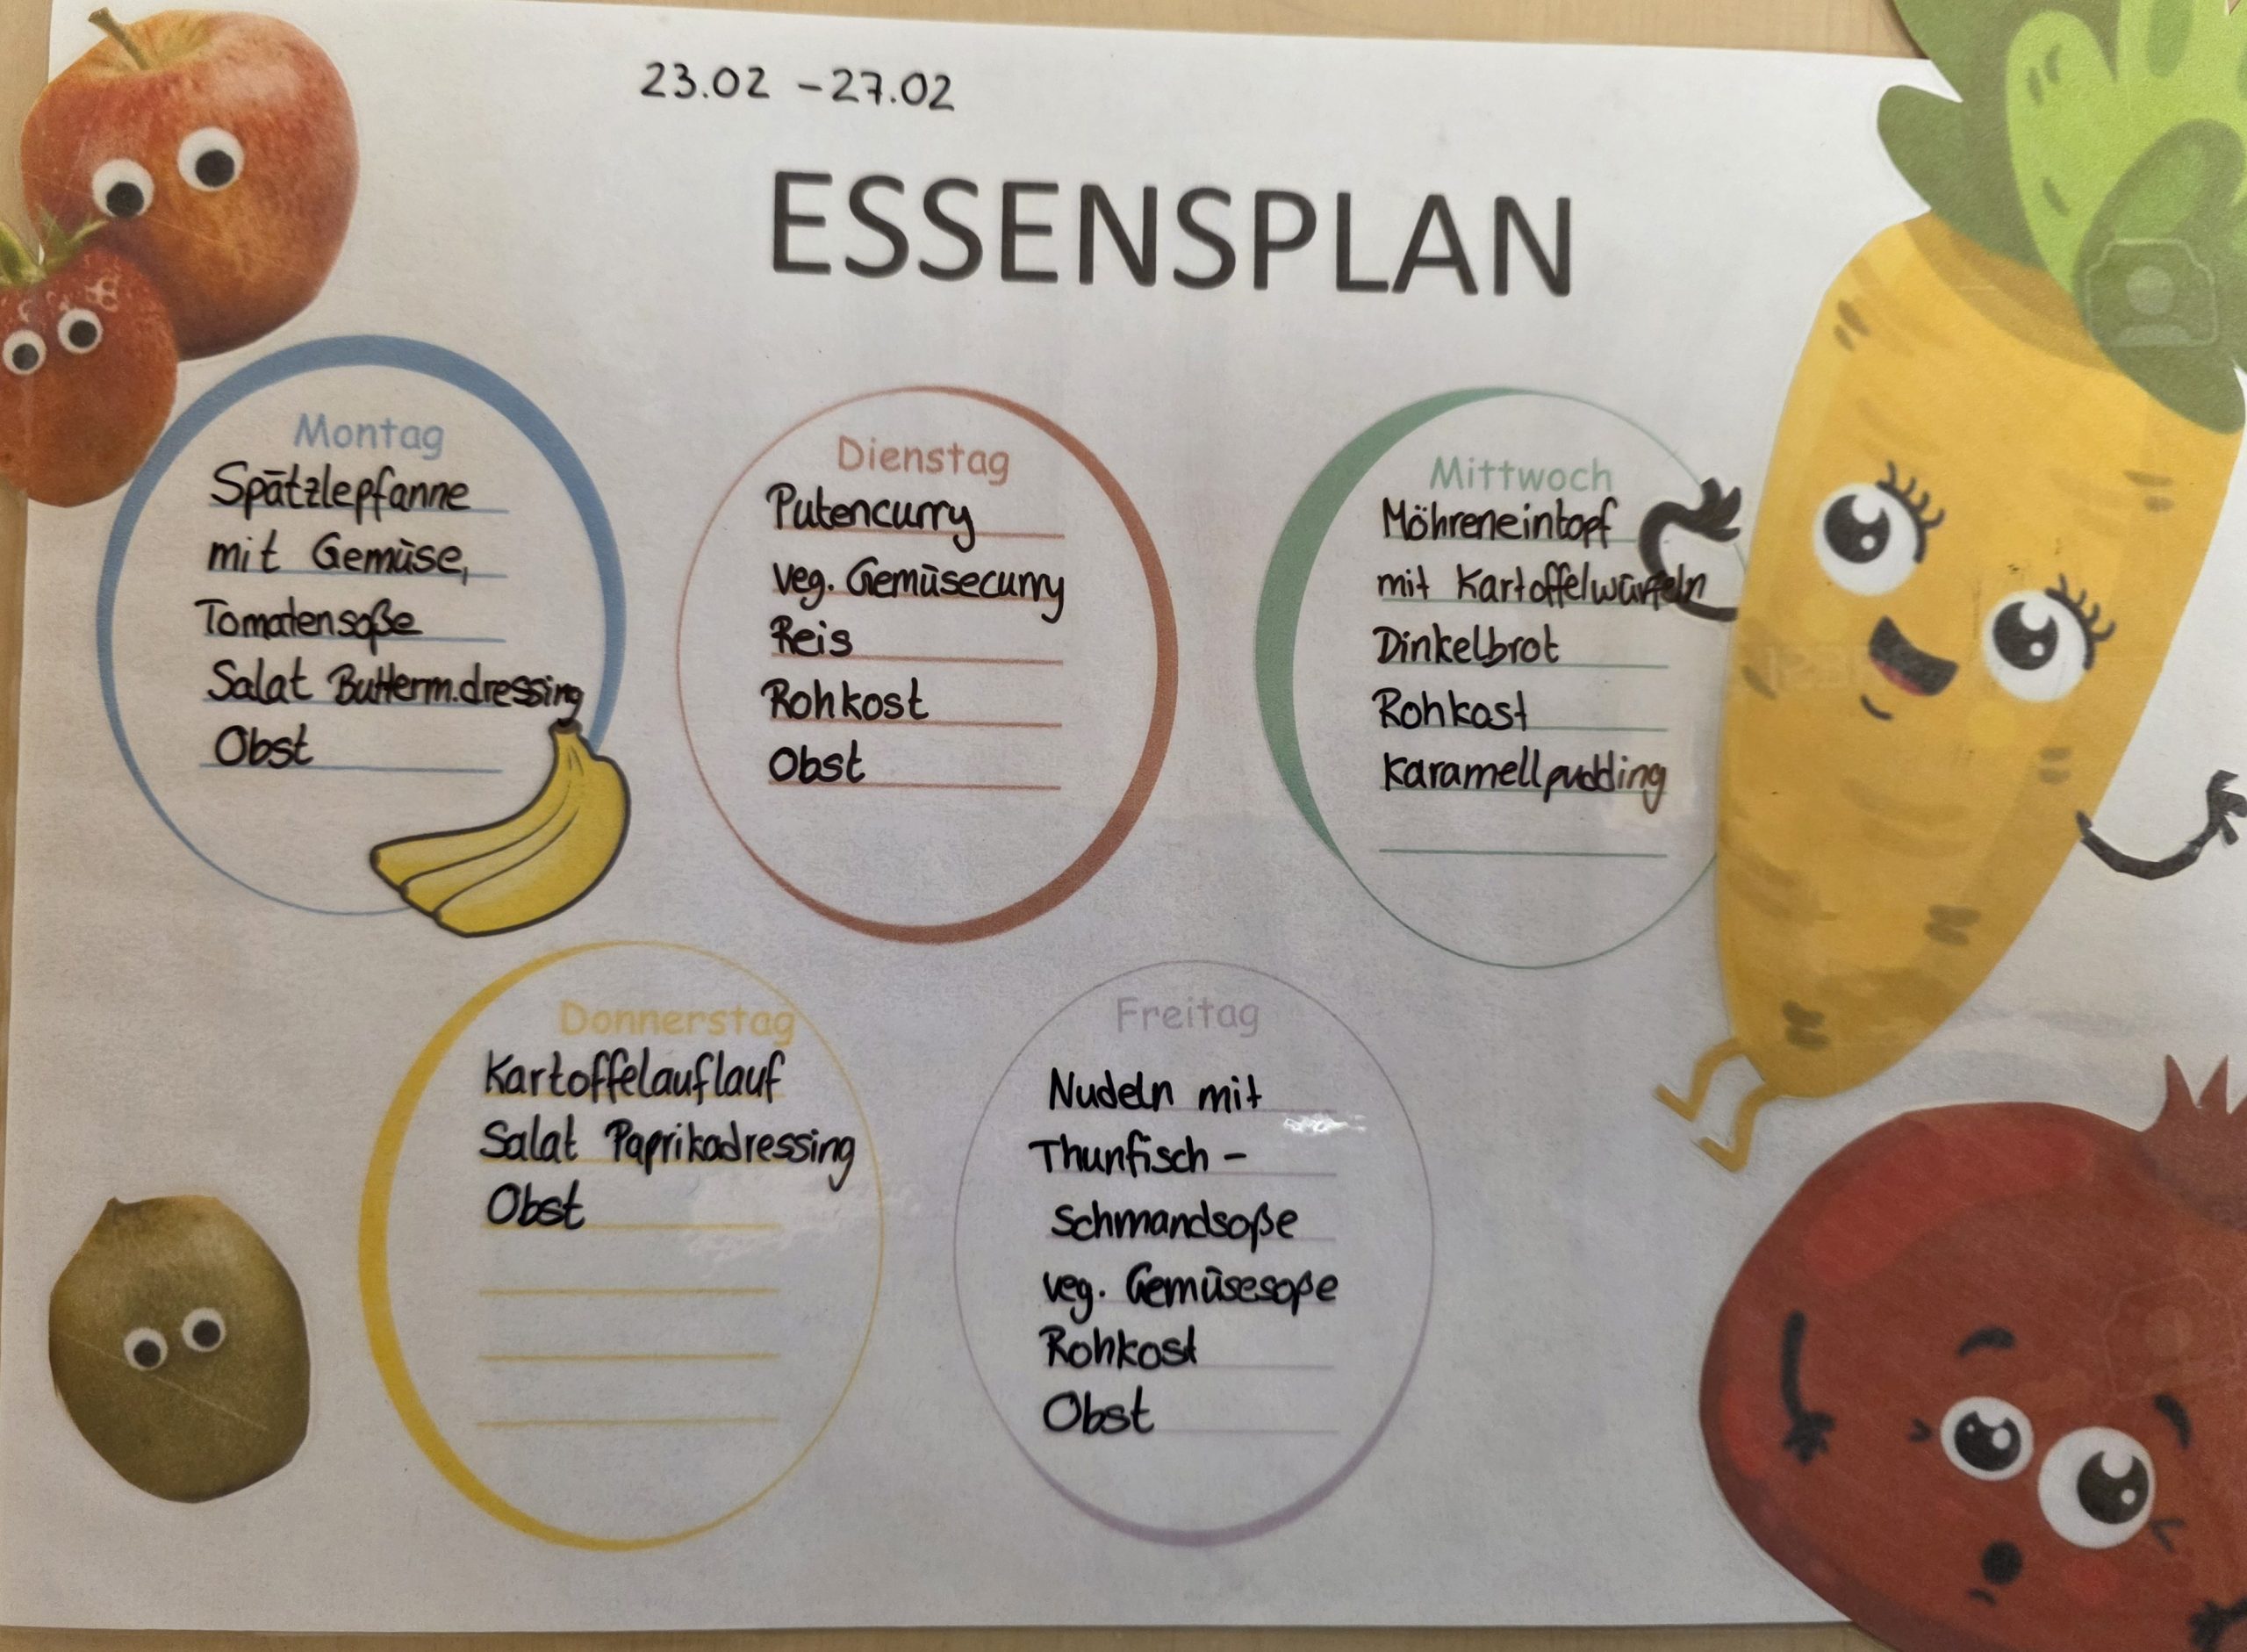 23.02 - 27.02
ESSENSPLAN
Montag
Spätzlepfanne
mit Gemüse,
Tomatensoße
Salat Butterm.dressing
Obst
Dienstag
Putencurry
veg. Gemüsecurry
Reis
Rohkost
Obst
Mittwoch
Möhreneintopf
mit Kartoffelwürfeln
Dinkelbrot
Rohkost
Karamellpudding
Donnerstag
Kartoffelauflauf
Salat Paprikadressing
Obst
Freitag
Nudeln mit
Thunfisch -
Schmandsoße
veg. Gemüsesoße
Rohkost
Obst